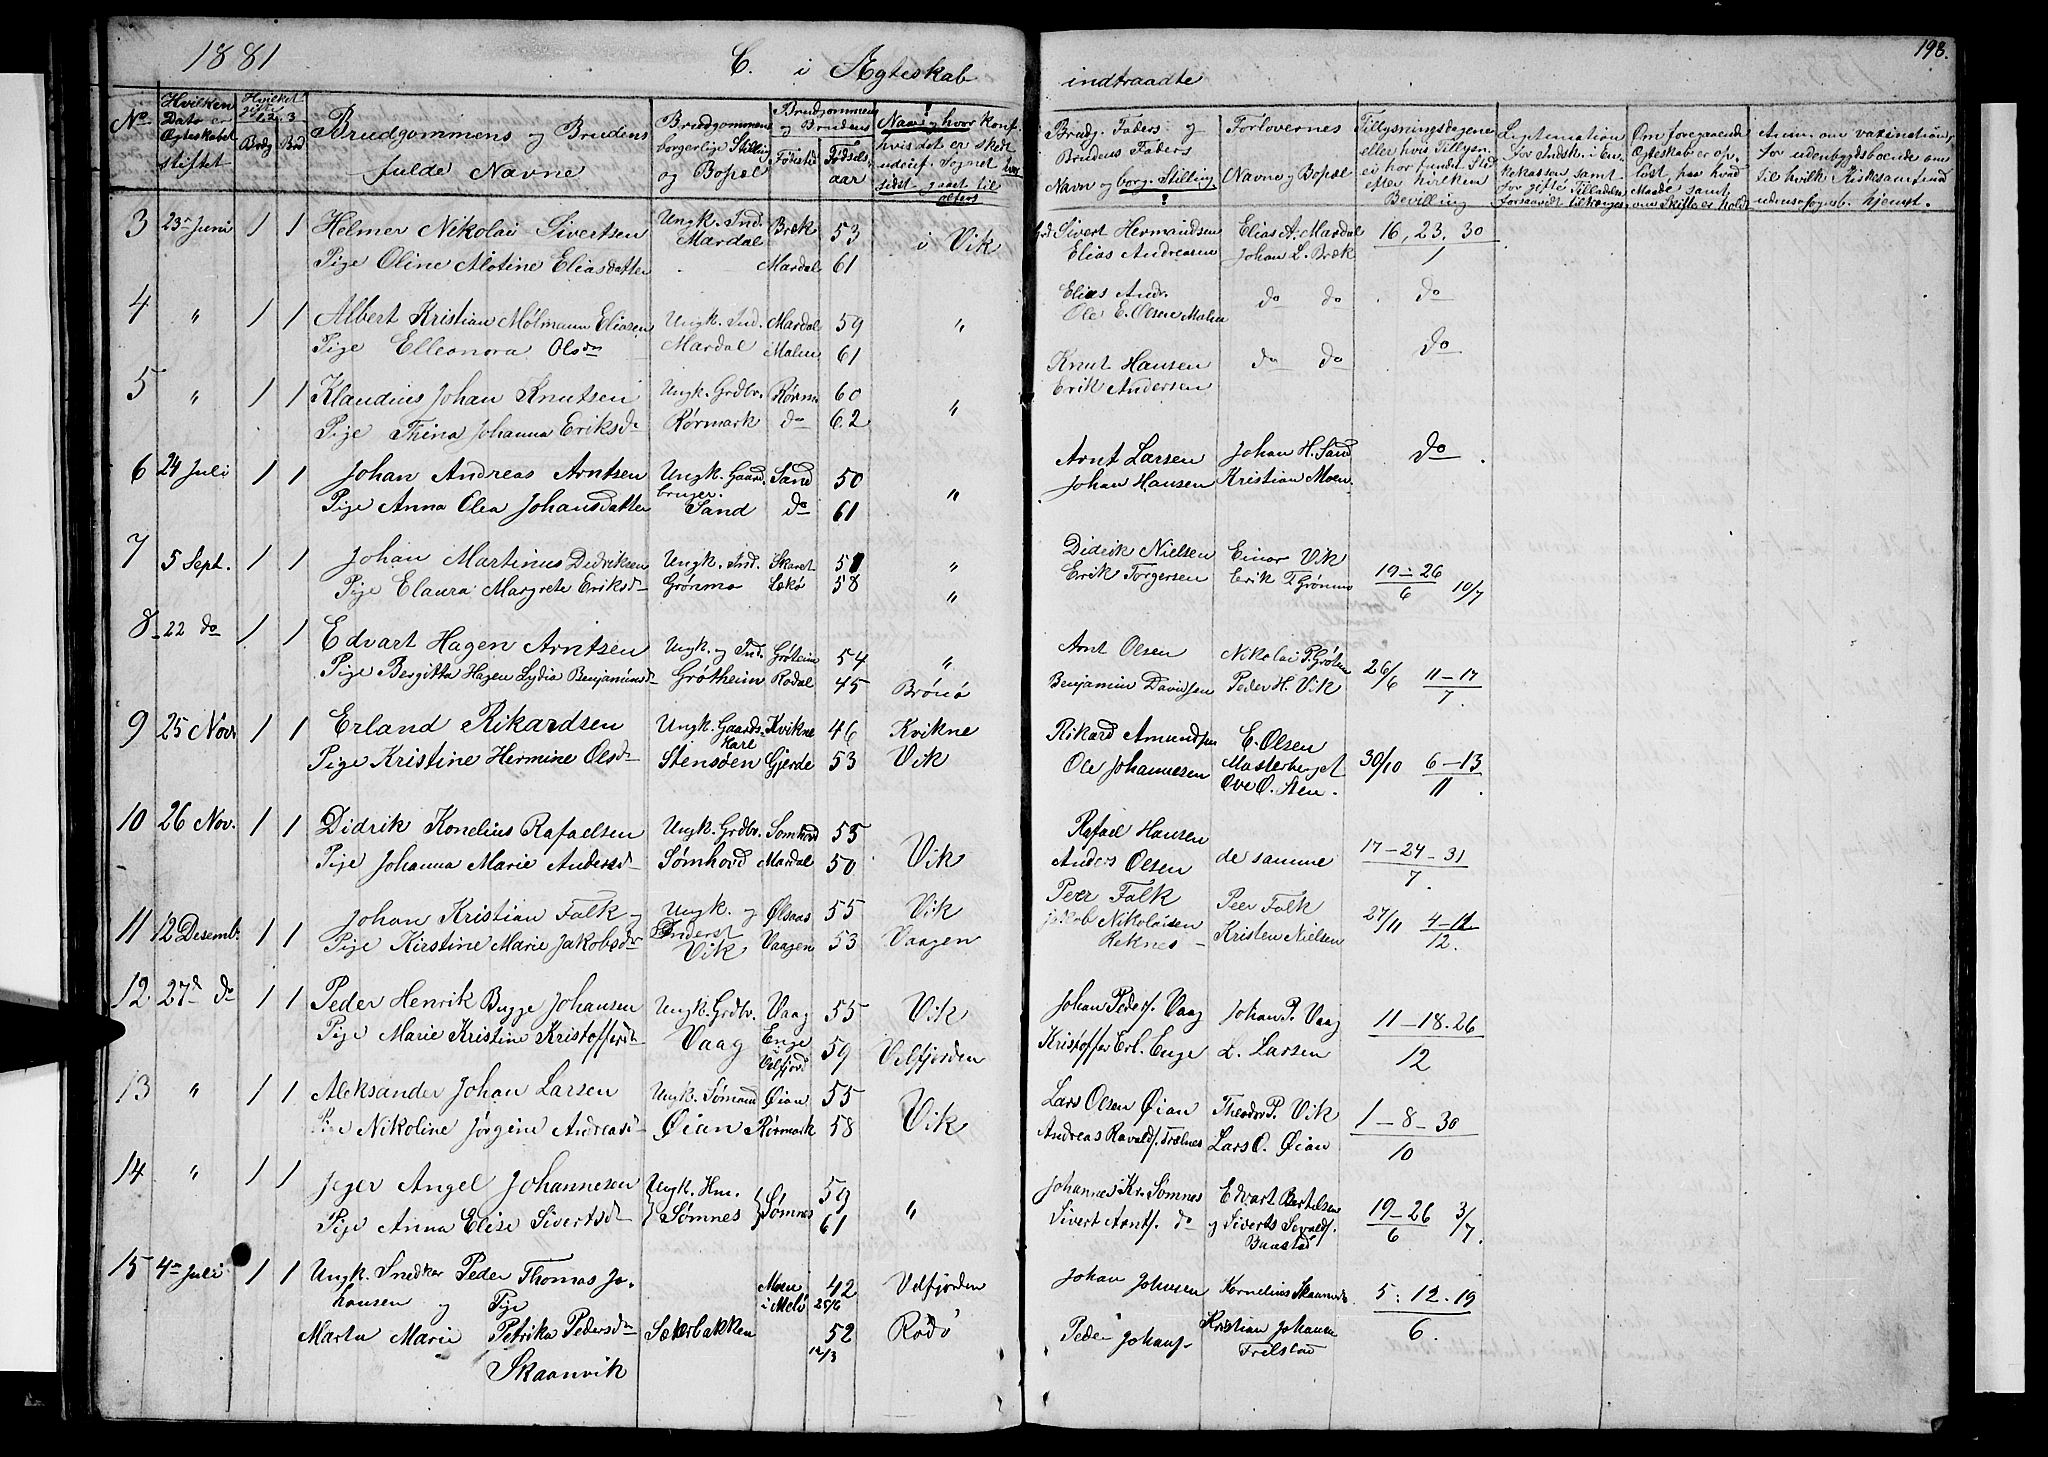 1881 C. i Ægteskab indtraadte 198.
No Hvilken Dato er Ægteskabet stiftet
Brudgommens og Brudens fulde Navne
Brudgommens borgerlige Stilling og Bopæl
Brudgommens og Brudens Fødested Fødselsaar
Brudg. Faders og Brudens Faders Navn og borg. Stilling
Forlovernes Navne og Bopæl
Tillysningsdagene eller hvis Tillysn. ei har funden Sted efter hvilken Bevilling
3 23de Juni 1 1 Helmer Nikolai Sivertsen Ungk. Ind. Mardal Bræk 53 i Vik Sivert Hermandsen Elias A. Mardal 16, 23, 30
Pige Oline Motine Eliasdatter Mardal 61 Elias Andreasen Johan L. Bræk 1
4 " 1 1 Albert Kristian Mølmann Eliasen Ungk. Ind. Mardal 59 " Elias Andr. do do do
Pige Elleonora Olsdr Mardal Malm 61 Ole E. Olsen Malm
5 " 1 1 Klaudius Johan Knutsen Ungk. Grdbr. Rørm 60 " Knut Hansen do do do
Pige Thina Johanna Eriksdr Rørmark do 62 Erik Andersen
6 24 Juli 1 1 Johan Andreas Arntsen Ungk. Gaardbruger Sand 50 " Arnt Larsen Johan H. Sand do
Pige Anna Olea Johansdatter Sand do 61 Johan Hansen Kristian Moen
7 5 Sept. 1 1 Johan Martinus Didriksen Ungk. Ind. Skaret 51 " Didrik Nielsen Einar Vik 19 - 26 10/7
Pige Elaura Margrete Eriksdr Grønmo Lekø 58 " Erik Torgersen Erik T. Grønmo 6
8 22 do 1 1 Edvart Hagen Arntsen Ungk. og Ind. Grøteim 54 " Arnt Olsen Nikolai P. Grøtem 26/6 11-17
Pige Bergitta Hagen Lydia Benjaminsdr Grøtheim Rodal 45 Brønø Benjamin Davidsen Peder H. Vik 7.
9 25 Novr 1 1 Erland Rikardsen Ungk. Gaards-Karl Kvikne 46 Kvikne Rikard Amundsen E. Olsen Masterberget 30/10 6-13
Pige Kristine Hermine Olsdr Stensøen Gjerde 53 Vik Ole Johannesen Ove O. Sten. 11.
10 26 Nov. 1 1 Didrik Konelius Rafaelsen Ungk. Grdbr. Sømhovd 55 Rafael Hansen de samme 17-24-31
Pige Johanna Marie Andersdr Sømhovd Mardal 50 Vik Anders Olsen 7.
11 12 Desemb. 1 1 Johan Kristian Falk og Ungk. og Inderst Ølsaas 55 Vik Peer Falk Peer Falk 27/11 4-11
Pige Kirstine Marie Jakobsdr Vik Vaagen 53 Vaagen Jakob Nikolaisen Reknes Kristen Nielsen 12.
12 27de do 1 1 Peder Henrik Bugge Johansen Ungk. Grdbr. Vaag 55 Vik Johan Peders. Vaag Johan P. Vaag 11-18.26
Pige Marie Kristine Kristoffersdr Vaag Enge i Velfjord 59 Velfjorden Kristoffer Erl. Enge L. Larsen 12
13 " 1 1 Aleksander Johan Larsen Ungk. Sømand Øian 55 Lars Olsen Øian Theodor P. Vik 1-8-30
Pige Nikoline Jørgine Andreasdr Øian Rørmark 58 Vik Andreas Ravalds. Trælnes Lars O. Øian 10
14 " 1 1 Jeger Angel Johannesen Ungk. Hm. Sømnes 59 " Johannes Kr. Sømnes Edvart Bertelsen 19-26 3/7.
Pige Anna Elise Sivertsdr Sømnes 61 Sivert Arnts. do og Siverts Sevalds. 6
15 4de Juli 1 1 Ungk. Snedker Peder Thomas Johansen og Moen i Melø 42 25/6 Velfjorden Johan Johnsen 5.12.19
Pige Marta Marie Petrika Pedersdr Sæterbakken 52 12/3 Rødø Peder Johans. Kristian Johansen 6.
Skaanvik